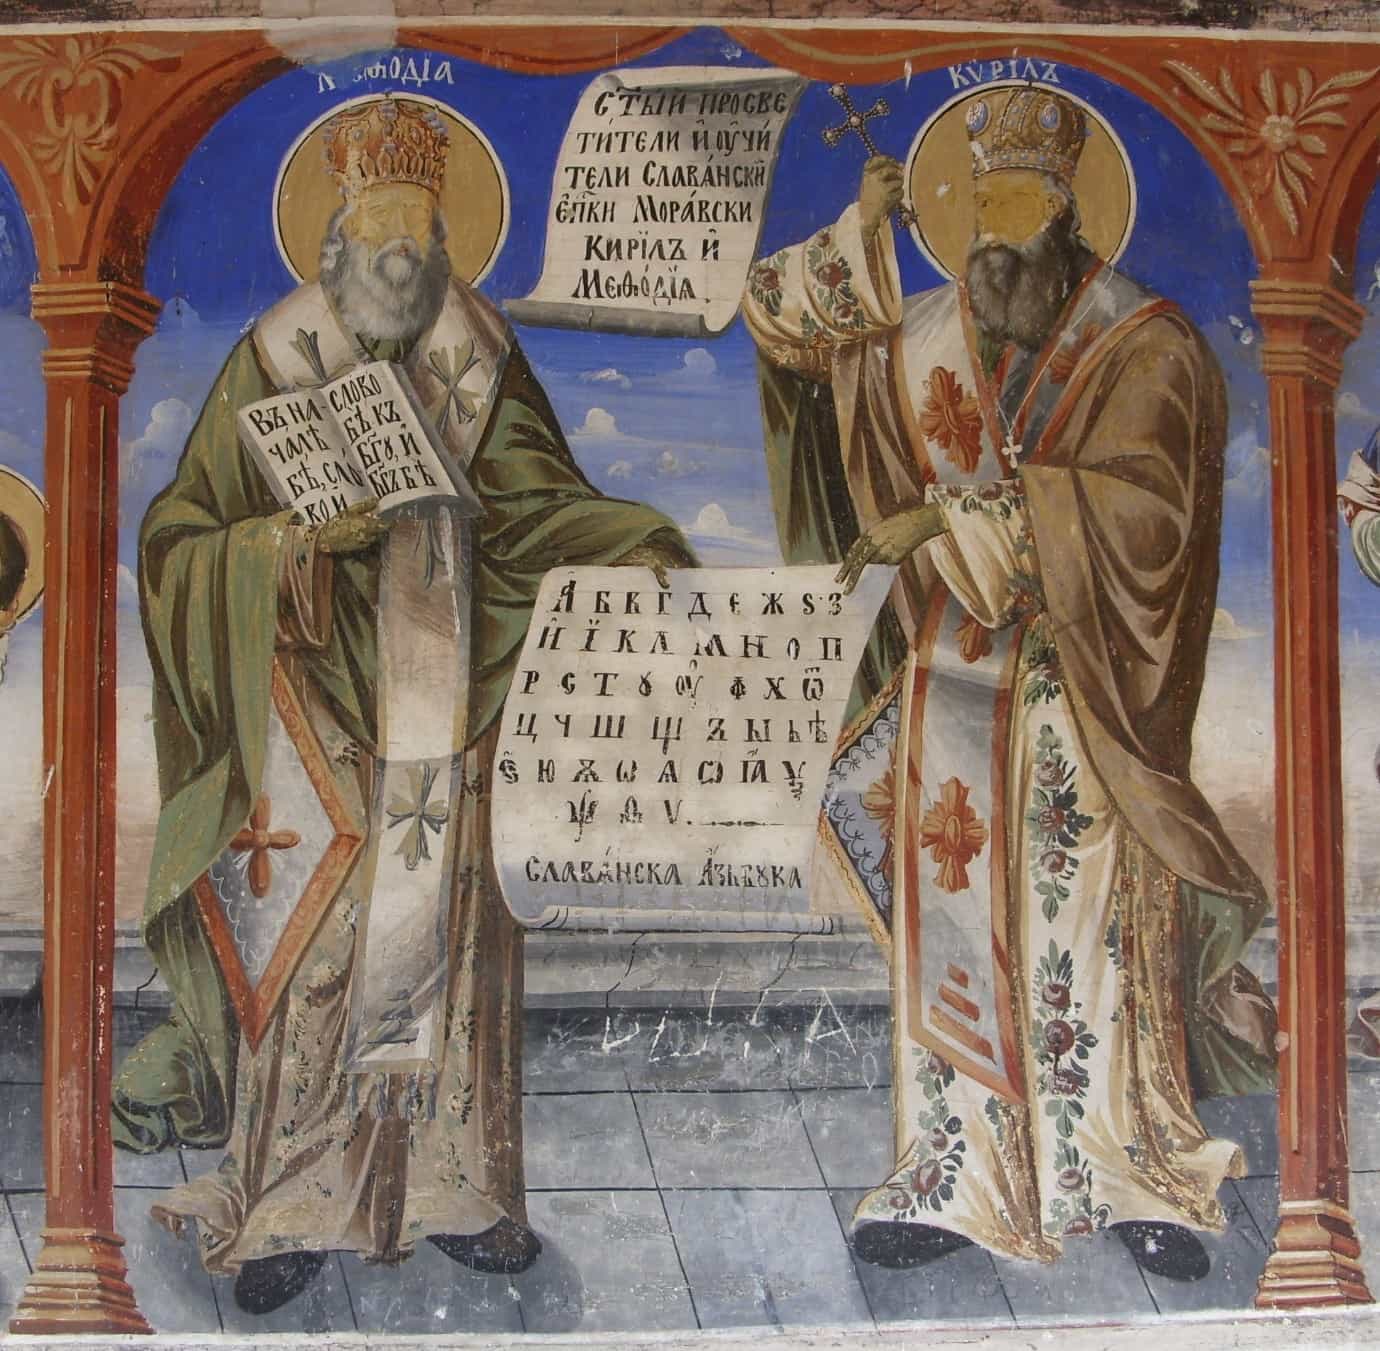 Меѳодїа
Кѷрілъ
С҃тыи просве
тители и҆ оу҆чи
тели Слава́нскїи
є҆п҃ки Мора́вски
Кирїлъ и҆
Меѳо́дїа.
Въ на-
чалѣ
бѣ, сло́
ко и
слово
бѣ къ
б҃гу, и҆
б҃гъ бѣ
А҆ Б В Г Д Є Ж Ѕ З
И҆ Ї К Л М Н О П
Р С Т Ꙋ Оу҆ Ф Х Ѿ
Ц Ч Ш Щ Ъ Ы Ь Ѣ
Є҆ Ю Ѫ Ѡ Ѧ Ѡ҆ Ꙗ Ѯ
Ѱ Ѳ Ѵ.
Слава́нска А҆збꙋка